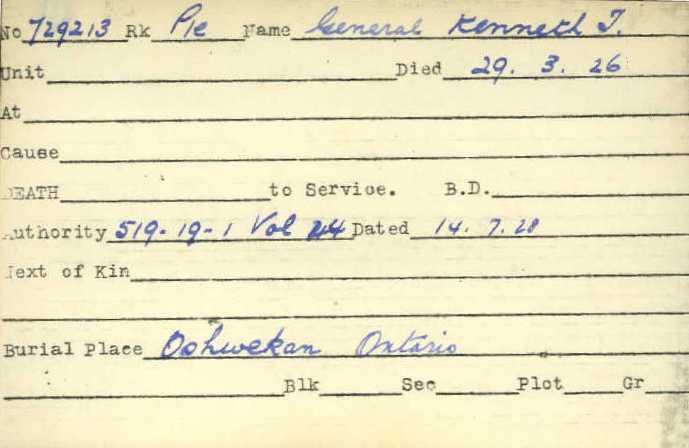 No 729213 Rk Pte Name General Kenneth J.
Unit Died 29. 3. 26
At
Cause
DEATH to Service. B.D.
Authority 519-19-1 Vol 44 Dated 14. 7. 28
Next of Kin
Burial Place Oshwekan Ontario
Blk Sec Plot Gr